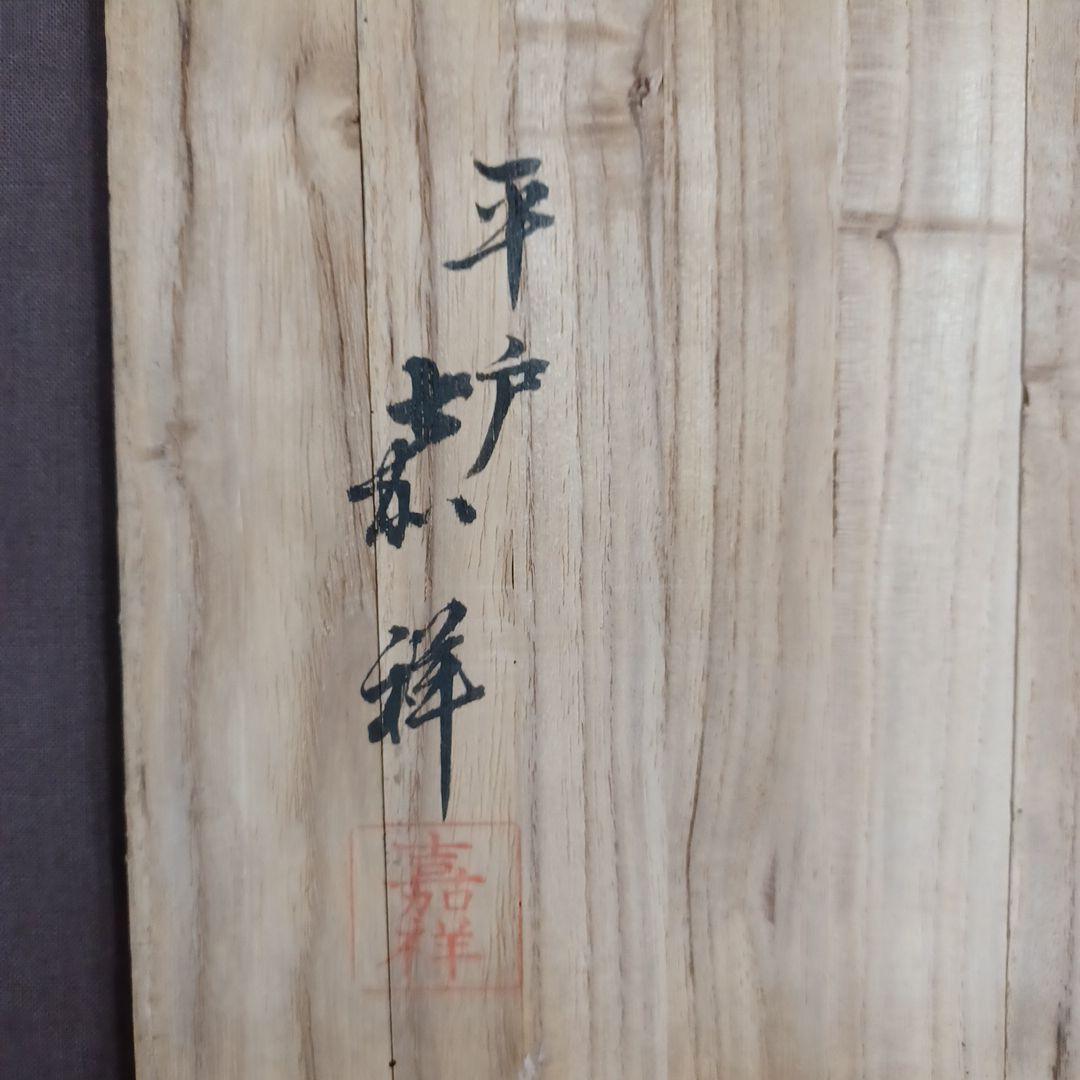 平戸
嘉祥
嘉祥